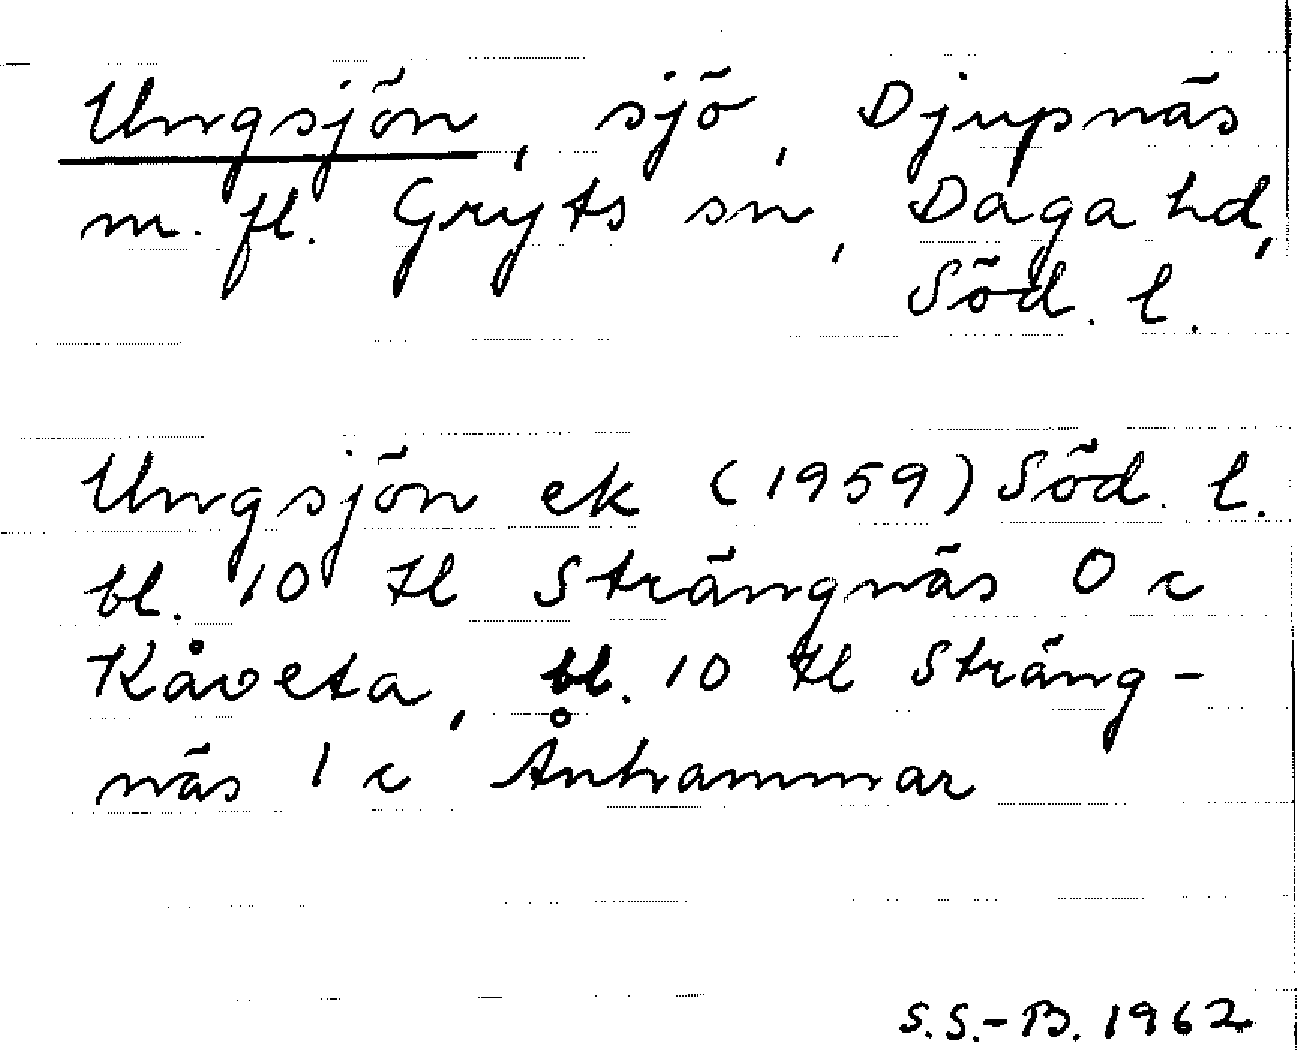 Ungsjön, sjö, Djupnäs
m. fl. Gryts sn, Daga hd,
Söd. l.
Ungsjön ek (1959) Söd. l.
bl. 10 tl Strängnäs 0 c
Kåveta, bl. 10 tl Sträng-
näs 1 c Ånhammar
S.S.-B. 1962